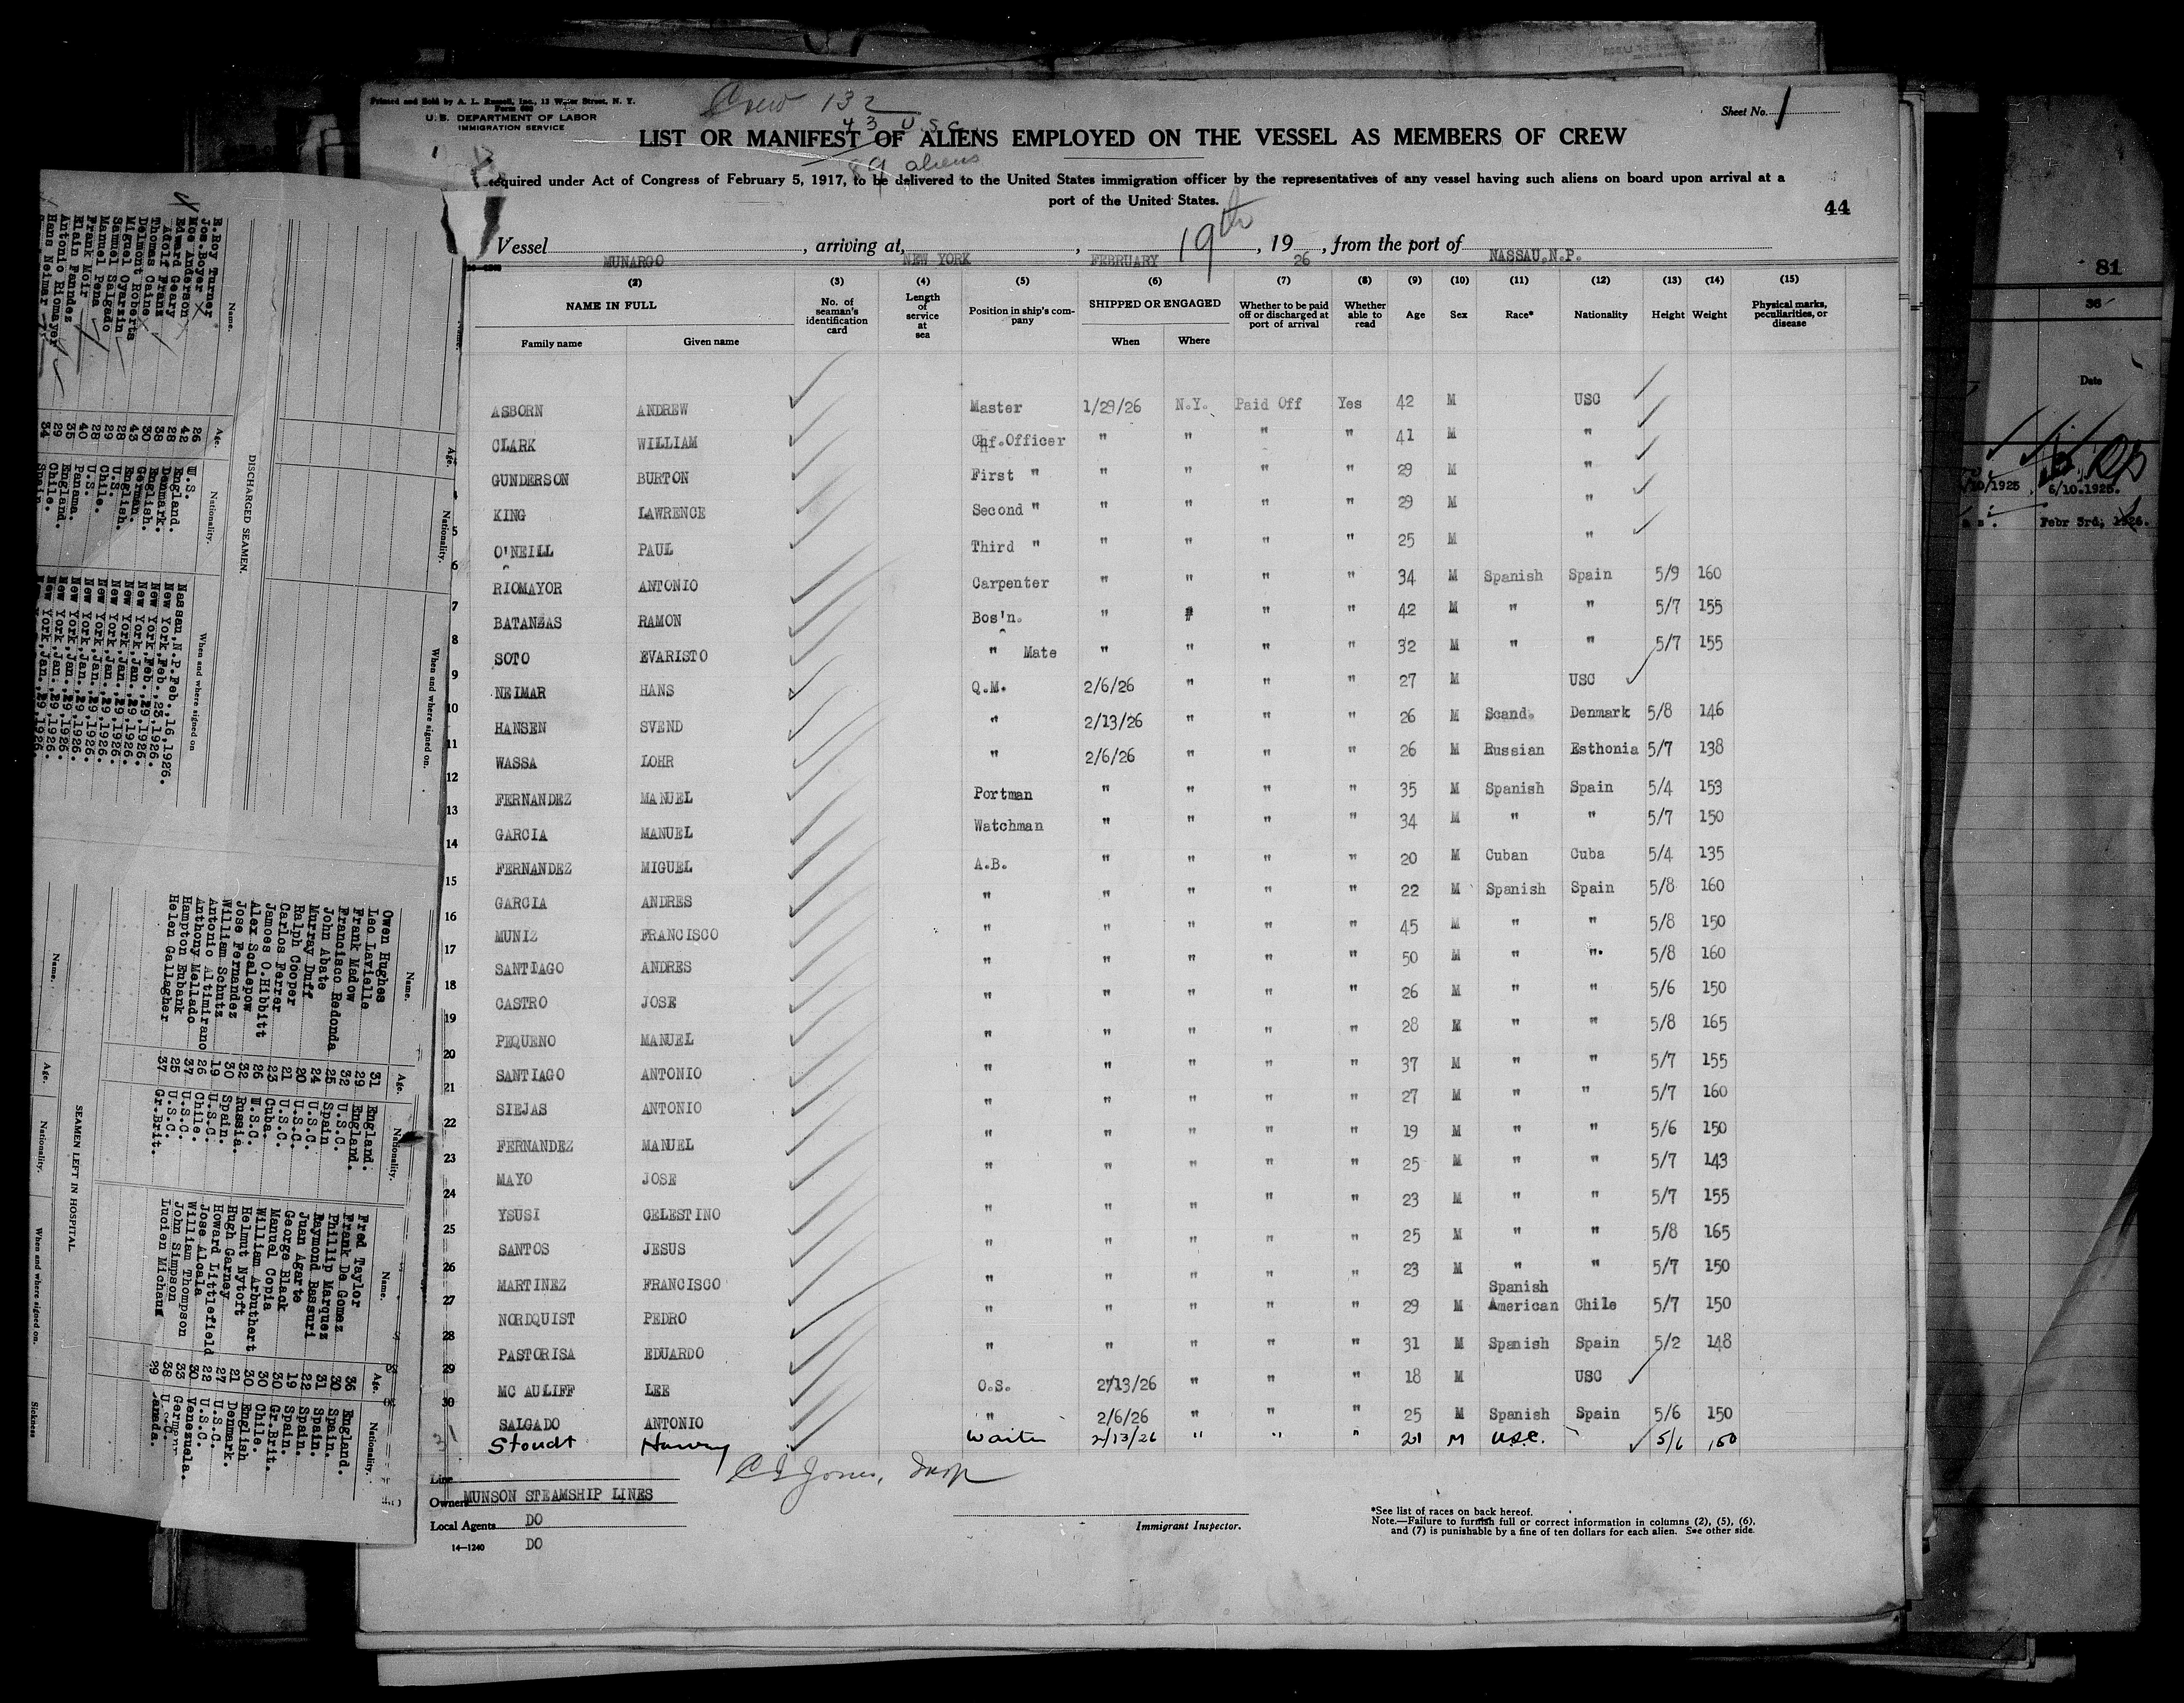 Printed and Sold by A. L. Russell, Inc., 13 Water Street, N. Y.
Form 680
U. S. DEPARTMENT OF LABOR
IMMIGRATION SERVICE
Crew 132
43 U.S.C.
89 aliens
Sheet No. 1
LIST OR MANIFEST OF ALIENS EMPLOYED ON THE VESSEL AS MEMBERS OF CREW
Required under Act of Congress of February 5, 1917, to be delivered to the United States immigration officer by the representatives of any vessel having such aliens on board upon arrival at a
port of the United States.
44
Vessel MUNARGO, arriving at NEW YORK, FEBRUARY 19th, 19 26, from the port of NASSAU.N.P.
(2) (3) (4) (5) (6) (7) (8) (9) (10) (11) (12) (13) (14) (15)
NAME IN FULL No. of seaman's identification card Length of service at sea Position in ship's company SHIPPED OR ENGAGED Whether to be paid off or discharged at port of arrival Whether able to read Age Sex Race* Nationality Height Weight Physical marks, peculiarities, or disease
Family name Given name When Where
ASBORN ANDREW Master 1/29/26 N.Y. Paid Off Yes 42 M USC
CLARK WILLIAM Chf.Officer " " " " 41 M "
GUNDERSON BURTON First " " " " " 29 M "
4 KING LAWRENCE Second " " " " " 29 M "
5 O'NEILL PAUL Third " " " " " 25 M "
6 RIOMAYOR ANTONIO Carpenter " " " " 34 M Spanish Spain 5/9 160
7 BATANZAS RAMON Bos'n. " " " " 42 M " " 5/7 155
8 SOTO EVARISTO " Mate " " " " 32 M " " 5/7 155
9 NEIMAR HANS Q.M. 2/6/26 " " " 27 M USC
10 HANSEN SVEND " 2/13/26 " " " 26 M Scand. Denmark 5/8 146
11 WASSA LOHR " 2/6/26 " " " 26 M Russian Esthonia 5/7 138
12 FERNANDEZ MANUEL Portman " " " " 35 M Spanish Spain 5/4 153
13 GARCIA MANUEL Watchman " " " " 34 M " " 5/7 150
14 FERNANDEZ MIGUEL A.B. " " " " 20 M Cuban Cuba 5/4 135
15 GARCIA ANDRES " " " " " 22 M Spanish Spain 5/8 160
16 MUNIZ FRANCISCO " " " " " 45 M " " 5/8 150
17 SANTIAGO ANDRES " " " " " 50 M " " 5/8 160
18 CASTRO JOSE " " " " " 26 M " " 5/6 150
19 PEQUENO MANUEL " " " " " 28 M " " 5/8 165
20 SANTIAGO ANTONIO " " " " " 37 M " " 5/7 155
21 SIEJAS ANTONIO " " " " " 27 M " " 5/7 160
22 FERNANDEZ MANUEL " " " " " 19 M " " 5/6 150
23 MAYO JOSE " " " " " 25 M " " 5/7 143
24 YSUSI CELESTINO " " " " " 23 M " " 5/7 155
25 SANTOS JESUS " " " " " 25 M " " 5/8 165
26 MARTINEZ FRANCISCO " " " " " 23 M " " 5/7 150
27 NORDQUIST PEDRO " " " " " 29 M Spanish American Chile 5/7 150
28 PASTORISA EDUARDO " " " " " 31 M Spanish Spain 5/2 148
29 MC AULIFF LEE O.S. 2/13/26 " " " 18 M USC
30 SALGADO ANTONIO " 2/6/26 " " " 25 M Spanish Spain 5/6 150
31 Stoudt Harvey Waiter 2/13/26 " " " 21 M U.S.C. 5/6 150
C E Jones, Insp
Line
Owners MUNSON STEAMSHIP LINES
Local Agents DO
14—1240 DO
Immigrant Inspector.
*See list of races on back hereof.
Note.—Failure to furnish full or correct information in columns (2), (5), (6),
and (7) is punishable by a fine of ten dollars for each alien. See other side.
Name. Age. Nationality. When and where signed on.
DISCHARGED SEAMEN.
Name. Age. Nationality. When and where signed on
E.Roy Turner 26 U.S. Nassau,N.P.Feb.,16,1926.
Jos.Boyer 42 England. New York,Feb.,
Moe Anderson 28 Denmark.
Edward Geary 38 English.
Adolf Franz 30 German.
Thomas Caine 43 English.
Delmont Roberts 28 U.S.
Miguel Oyarzin 29 Chile.
Samuel Salgado 28 U.S.
Manuel Pena 40 Panama.
Frank Moir 35 England.
Elain Faundez 29 Chile.
Antonio Riomayer 34 Spain
Hans Neimar
New York,Jan.,29,1926.
Name. Age. Nationality.
Owen Hughes 31 England.
Leo Lavielle 29 England.
Frank Madow 32 U.S.C.
Francisco Redonda 25 Spain.
John Abate 24 U.S.C.
Murray Duff 20 U.S.C.
Ralph Cooper 21 U.S.C.
Carlos Ferrer 23 Cuba.
Jamoes O.Hibbitt 26 U.S.C.
Alex Scalepow 32 Russia.
Jose Fernandez 30 Spain.
William Schutz 19 U.S.C.
Antonio Altimirano 26 Chile.
Anthony Mellado 37 U.S.C.
Hampton Eubank 25 U.S.C.
Helen Gallagher 37 Gr.Brit.
Name. Age. Nationality.
Fred Taylor 36 England.
Frank De Gomez 30 Spain.
Phillip Marquez 31 Spain.
Raymond Bassuri 22 Spain.
Juan Agarte 19 Spain.
George Black 30 Gr.Brit.
Manuel Copia 30 Chile.
William Arbuthert 30 English
Helmut Nytoft 21 Denmark.
Hugh Garney 27 U.S.C.
Howard Littlefield 22 U.S.C.
Jose Alcala 30 Venezuela.
William Thompson 33 German
John Simpson 38 U.S.C.
Lucien Michaud 29 Canada.
SEAMEN LEFT IN HOSPITAL
Name. Age. Nationality. When and where signed on. Sickness
81
36
Date
/10/1925 6/10.1925.
Febr 3rd, 1926.